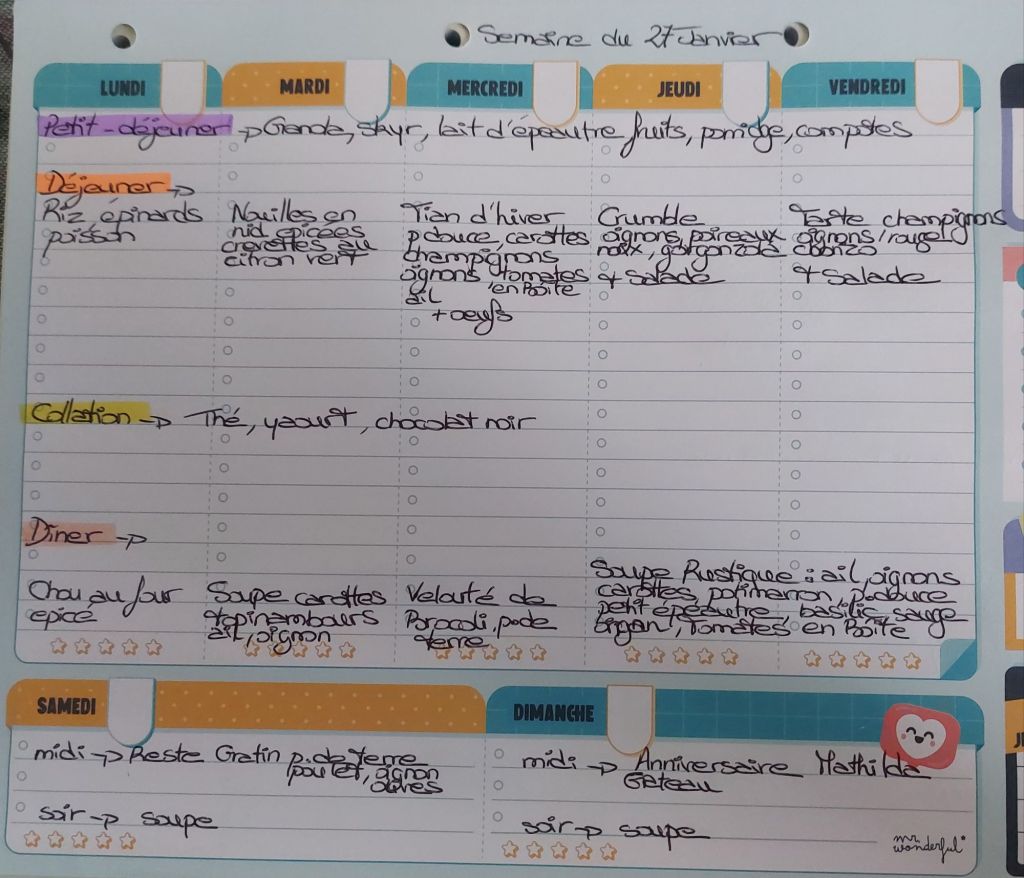 Semaine du 27 Janvier
LUNDI MARDI MERCREDI JEUDI VENDREDI
Petit-déjeuner → Granola, skyr, lait d'épeautre fruits, porridge, compotes
Déjeuner →
Riz épinards
poisson
Nouilles en
nid épicées
crevettes au
citron vert
Tian d'hiver
p.douce, carottes
champignons
oignons, tomates
ail en Boîte
+ oeufs
Crumble
oignons, poireaux
noix, gorgonzola
+ Salade
Tarte champignons
oignons rouge
chorizo
+ Salade
Collation → Thé, yaourt, chocolat noir
Dîner →
Chou au four
épicé
Soupe carottes
topinambours
ail, oignon
Velouté de
Brocoli, p.de
terre
Soupe Rustique : ail, oignons
carottes, potimarron, p.douce
petit épeautre, basilic, sauge
origan, Tomates en Boîte
SAMEDI
midi → Reste Gratin p. de Terre
poulet, oignon
olives
soir → soupe
DIMANCHE
midi → Anniversaire Mathilda
Gâteau
soir → soupe
mr.
wonderful*